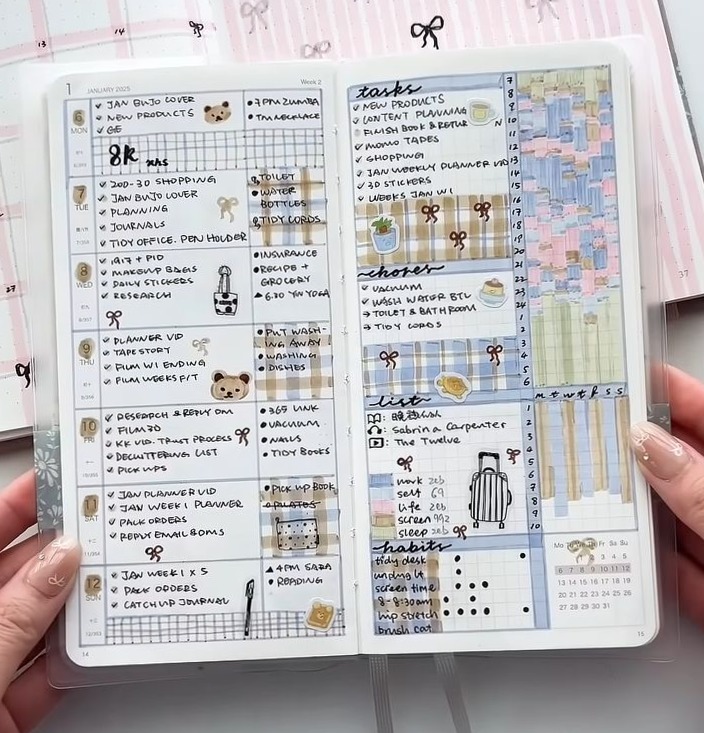 13
14
27
37
1 JANUARY 2025
Week 2
6
MON
✓ JAN BUJO COVER
✓ NEW PRODUCTS
✓ GE
• 7PM ZUMBA
• TM NECKLACE
8k
7
TUE
✓ 200-30 SHOPPING
✓ JAN BUJO COVER
✓ PLANNING
✓ JOURNALS
✓ TIDY OFFICE. PEN HOLDER
TOILET
• WATER
BOTTLES
TIDY CORDS
8
WED
✓ MAKEUP BAGS
✓ DAILY STICKERS
✓ RESEARCH
• INSURANCE
• RECIPE +
GROCERY
▲ 6.30 YIN YOGA
9
THU
✓ PLANNER VID
✓ TAPE STORY
✓ FILM W1 ENDING
✓ FILM WEEKS F/T
• PUT WASH-
ING AWAY
• WASHING
• DISHES
10
FRI
✓ RESEARCH & REPLY DM
✓ FILM 3D
✓ KK VID. TRUST PROCESS
✓ DECLUTTERING LIST
✓ PICK UPS
• 365 LINK
• VACUUM
• NAILS
• TIDY BOOKS
11
SAT
✓ JAN PLANNER VID
✓ JAN WEEK 1 PLANNER
✓ PACK ORDERS
✓ REPLY EMAIL & DMS
• PICK UP BOOK
• PILATES
12
SUN
✓ JAN WEEK 1 X 5
✓ PACK ORDERS
✓ CATCH UP JOURNAL
▲ 4PM SARA
• READING
14
tasks
✓ NEW PRODUCTS
✓ CONTENT PLANNING
FINISH BOOK & RETURN
✓ MOMO TAPES
✓ SHOPPING
✓ JAN WEEKLY PLANNER VID
✓ 3D STICKERS
✓ WEEKS JAN W1
chores
✓ VACUUM
✓ WASH WATER BTL
→ TOILET & BATHROOM
→ TIDY CORDS
list
: Sabrina Carpenter
: The Twelve
work
self 69
life
screen
sleep
habits
tidy desk
screen time
8-8:30am
hip stretch
brush cat
7
8
9
10
11
12
13
14
15
16
17
18
19
20
21
22
23
24
1
2
3
4
5
6
m t w t f s s
1
2
3
4
5
6
7
8
9
10
Mo Tu We Th Fr Sa Su
1 2 3 4 5
6 7 8 9 10 11 12
13 14 15 16 17 18 19
20 21 22 23 24 25 26
27 28 29 30 31
15